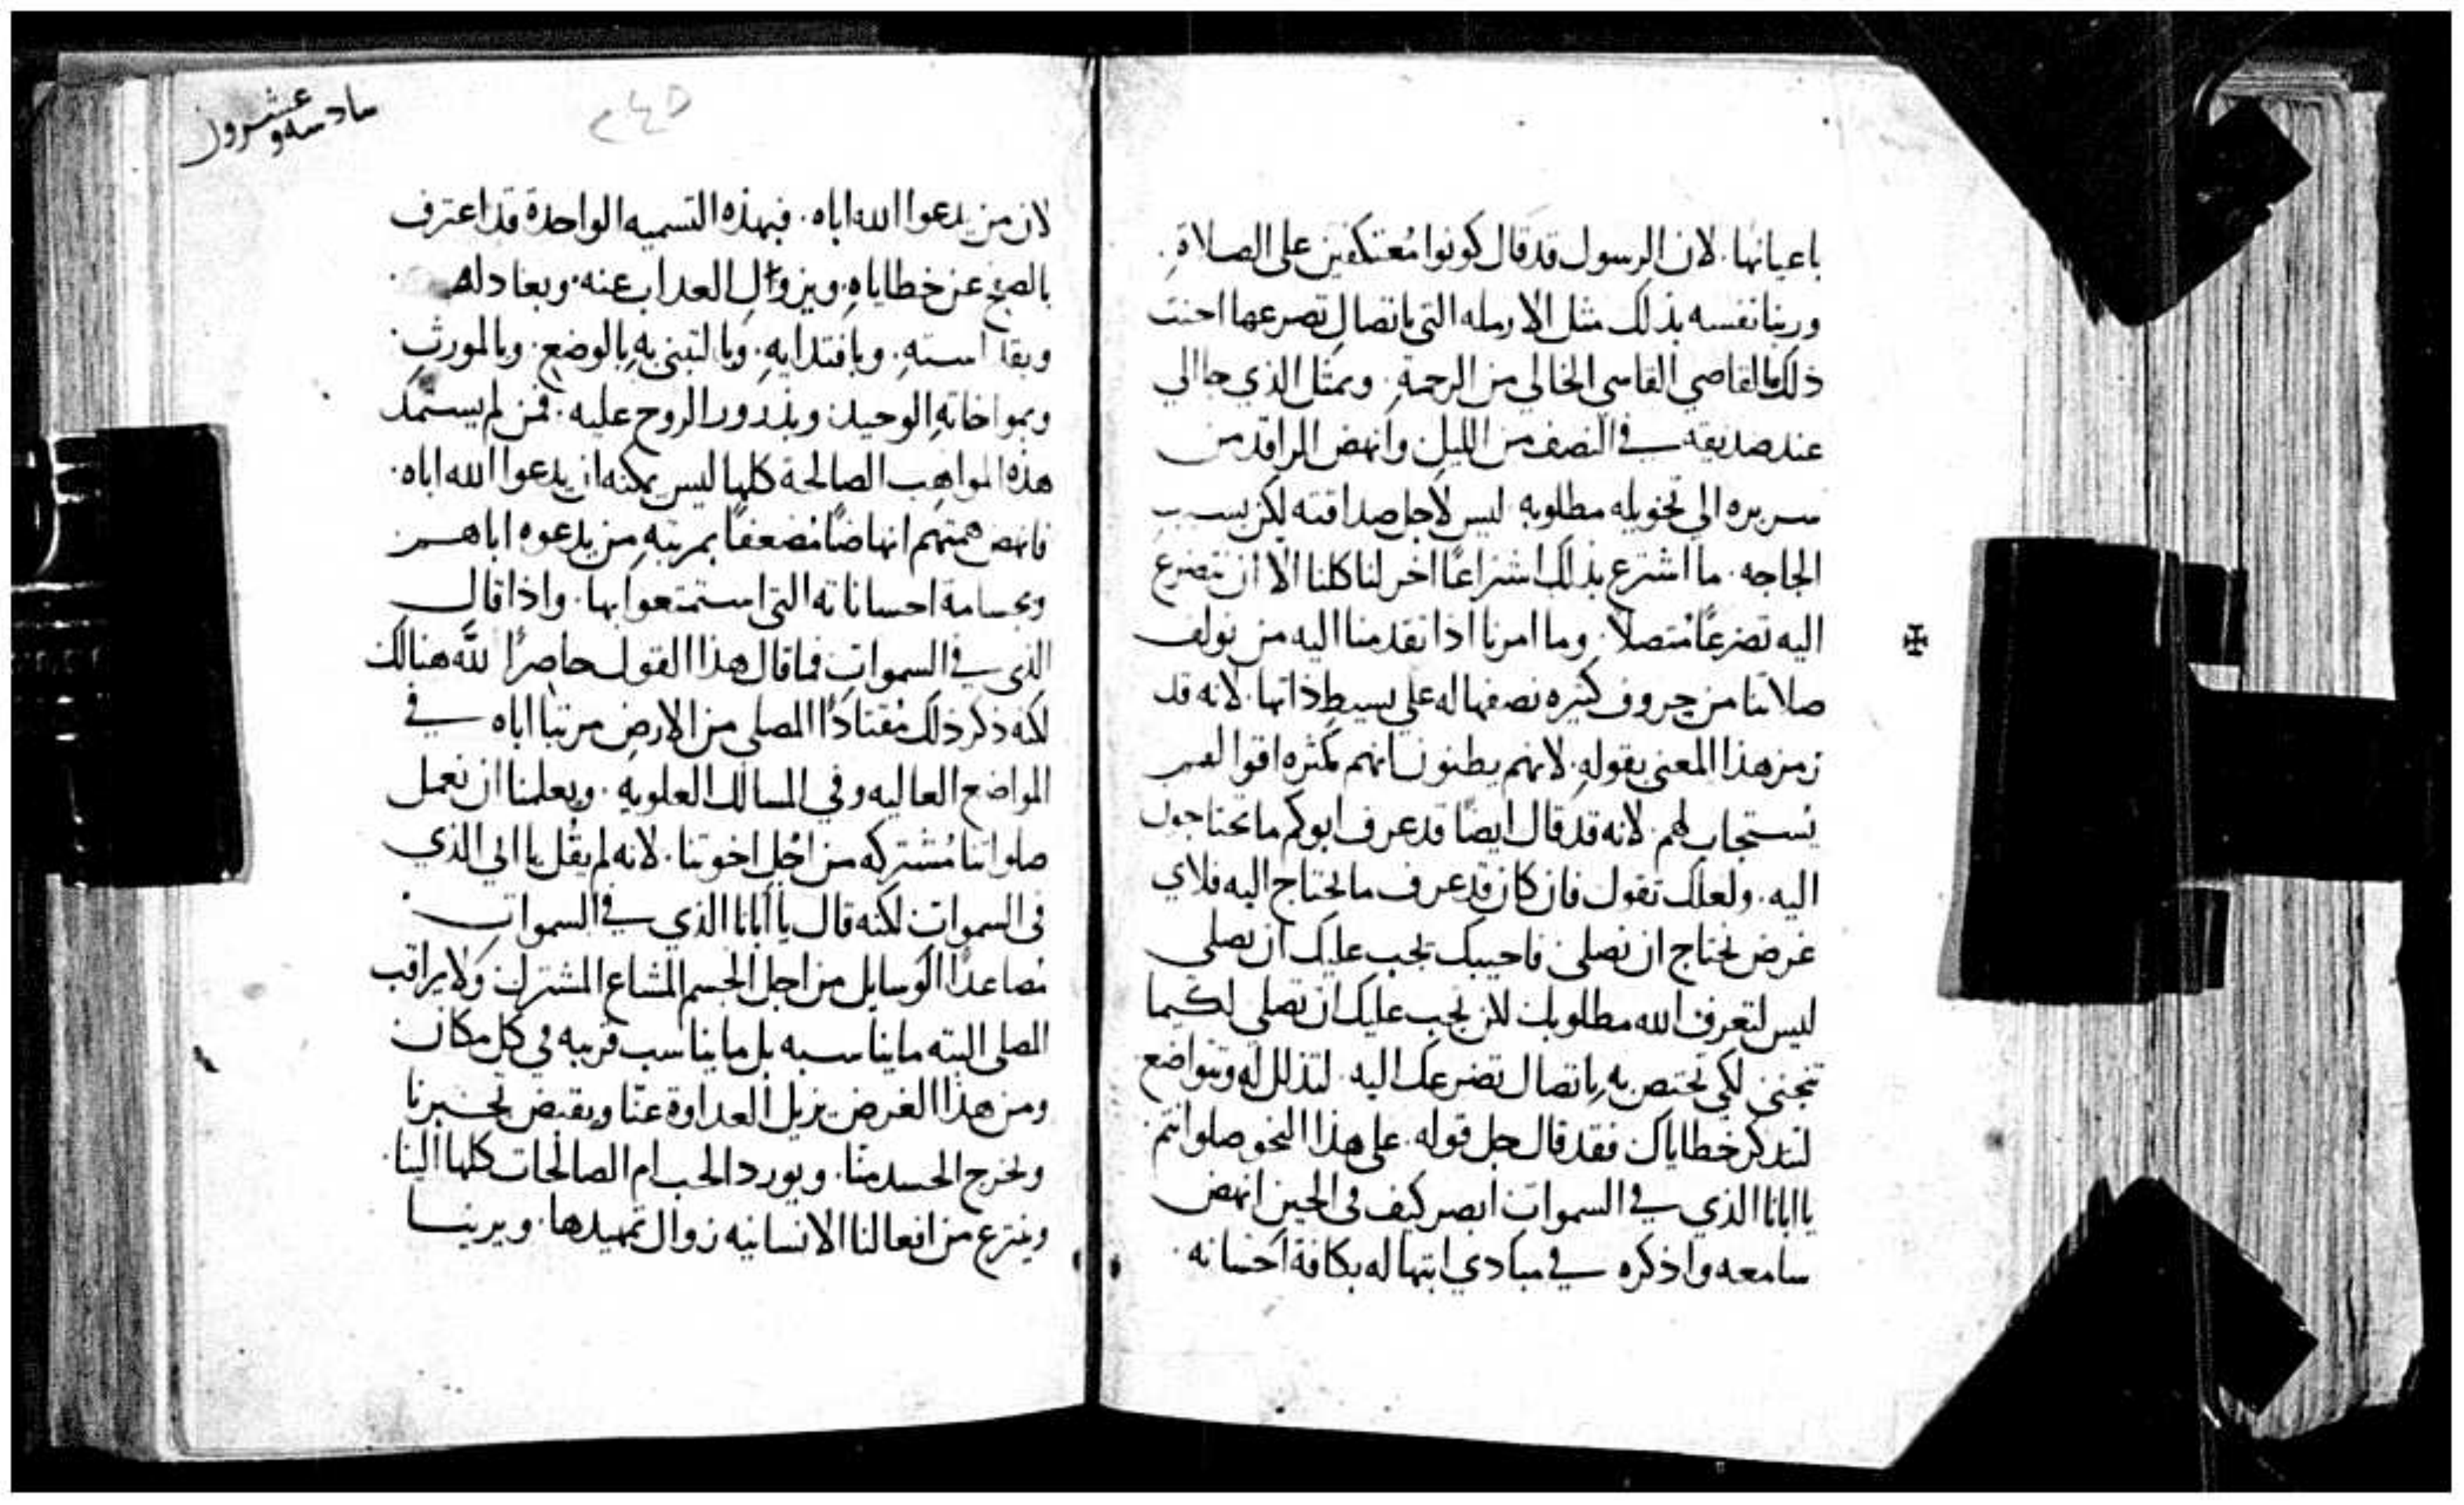 باعيانها. لان الرسول قد قال كونوا مُعتكفين على الصلاة.
وربنا نفسه بذلك مثل الارمله التي باتصال تضرعها احنت
ذلك القاضي القاسي الخالي من الرحمة. وبمثل الذي جا الي
عند صديقه في النصف من الليل وانهض الراقد من
سريره الى تخويله مطلوبه ليس لاجل صداقته لكن بسبب
الجاجه. ما اشترع بذلك اشتراعًا اخر لنا كلنا الا ان نتضرع
اليه تضرعًا مُتصلاً. وما امرنا اذا تقدمنا اليه من نولف
صلاتنا من حروف كثيره نصفها له على بسيط ذاتها. لانه قد
رمز هذا المعنى بقوله. لانهم يظنون انهم بكثره اقوالهم
يُستجاب لهم. لانه قد قال ايضًا قد عرف ابوكم ما تحتاجون
اليه. ولعلك تقول فان كان قد عرف ما نحتاج اليه فلاي
غرض نحتاج ان نصلي فاجيبك يجب عليك ان تصلي
ليس لتعرف الله مطلوبك لكن يجب عليك ان تصلي لكيما
تجنن لكي تختص به باتصال تضرعك اليه. لتذلل له وتتواضع
لتذكر خطاياك فقد قال جل قوله. على هذا النحو صلوا انتم
يا ابانا الذي في السموات ابصر كيف في الحين انهض
سامعه واذكره في مبادي ابتهاله بكافة احسانه
سادسه وعشرون
٢٤٥
لان من يدعوا الله اباه. فبهذه التسميه الواحدة قد اعترف
بالصفح عن خطاياه. وبزوال العداب عنه. وبعادله
وبقداسته. وبافتدايه. وبالتبني به بالوضع. وبالمورث.
وبمواخاته الوحيد. وبدرور الروح عليه. فمن لم يستمد
هذه المواهب الصالحة كلها ليس يمكنه ان يدعوا الله اباه.
فانهض همتهم انهاضًا مُضعفًا بمرتبه من يدعوه اباهم
وبجسامة احساناته التي استمتعوا بها. واذا قال
الذي في السموات فما قال هذا القول حاصرًا لله هنالك
لكنه ذكر ذلك مُقتادًا المصلي من الارض مرتبا اباه في
المواضع العاليه وفي المسالك العلويه. ويعلمنا ان نعمل
صلواتنا مُشتركه من اجل اخوتنا. لانه لم يقُل يا ابي الذي
في السموات لكنه قال يا أبانا الذي في السموات
مُصاعدًا الوسايل من اجل الجسم المشاع المشترك ولا يراقب
المصلي البته ما يناسبه بل ما يناسب قريبه في كل مكان
ومن هذا الغرض يزيل العداوة عنّا ويقبض تجبرنا
ويخرج الحسد منّا. ويورد الحب ام الصالحات كلها الينا.
وينزع من افعالنا الانسانيه زوال تمهيدها. ويرينا